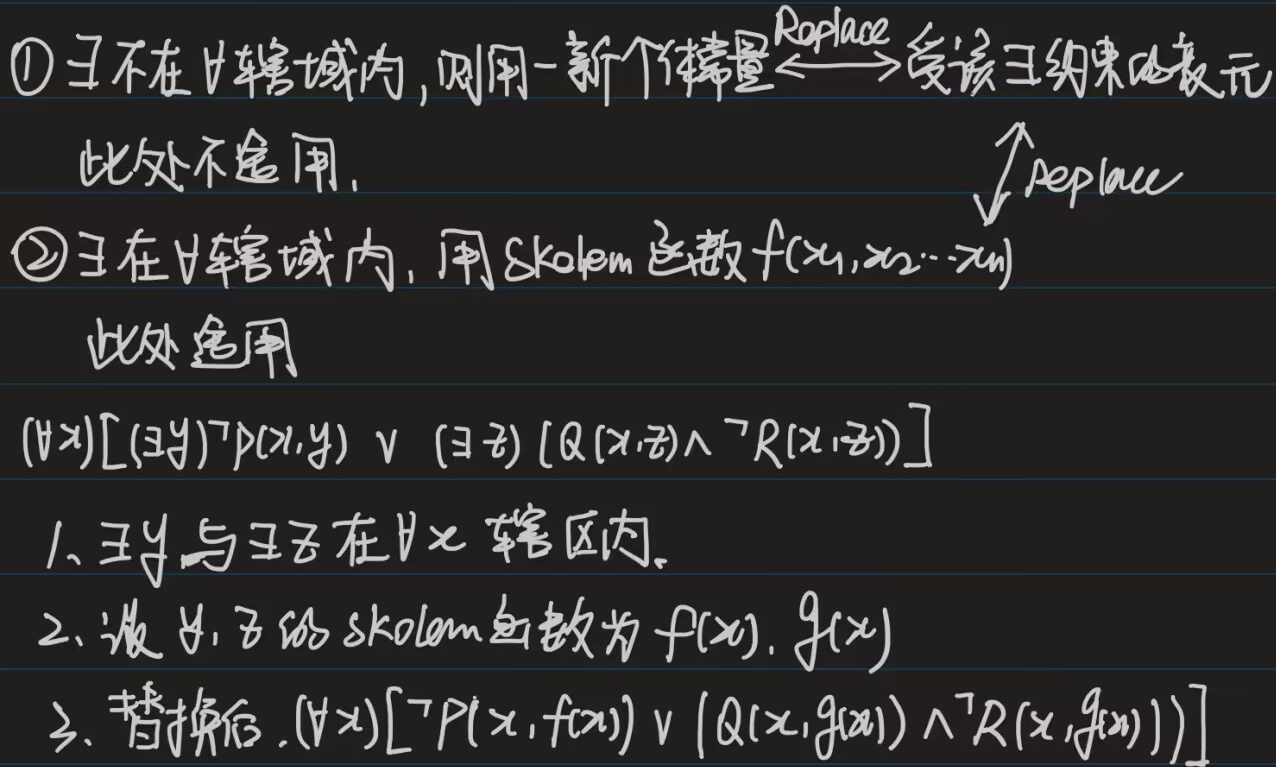 ① ∃不在∀辖域内,则用一新个体常量 ⟷ 受该∃约束的变元
Replace
此处不适用.
Replace
② ∃在∀辖域内,用Skolem函数f(x₁,x₂…xₙ)
此处适用
(∀x)[(∃y)¬P(x,y) ∨ (∃z)[Q(x,z)∧¬R(x,z))]
1、∃y与∃z在∀x辖区内。
2、设y,z的skolem函数为f(x).g(x)
3、替换后.(∀x)[¬P(x,f(x))∨(Q(x,g(x))∧¬R(x,g(x)))]